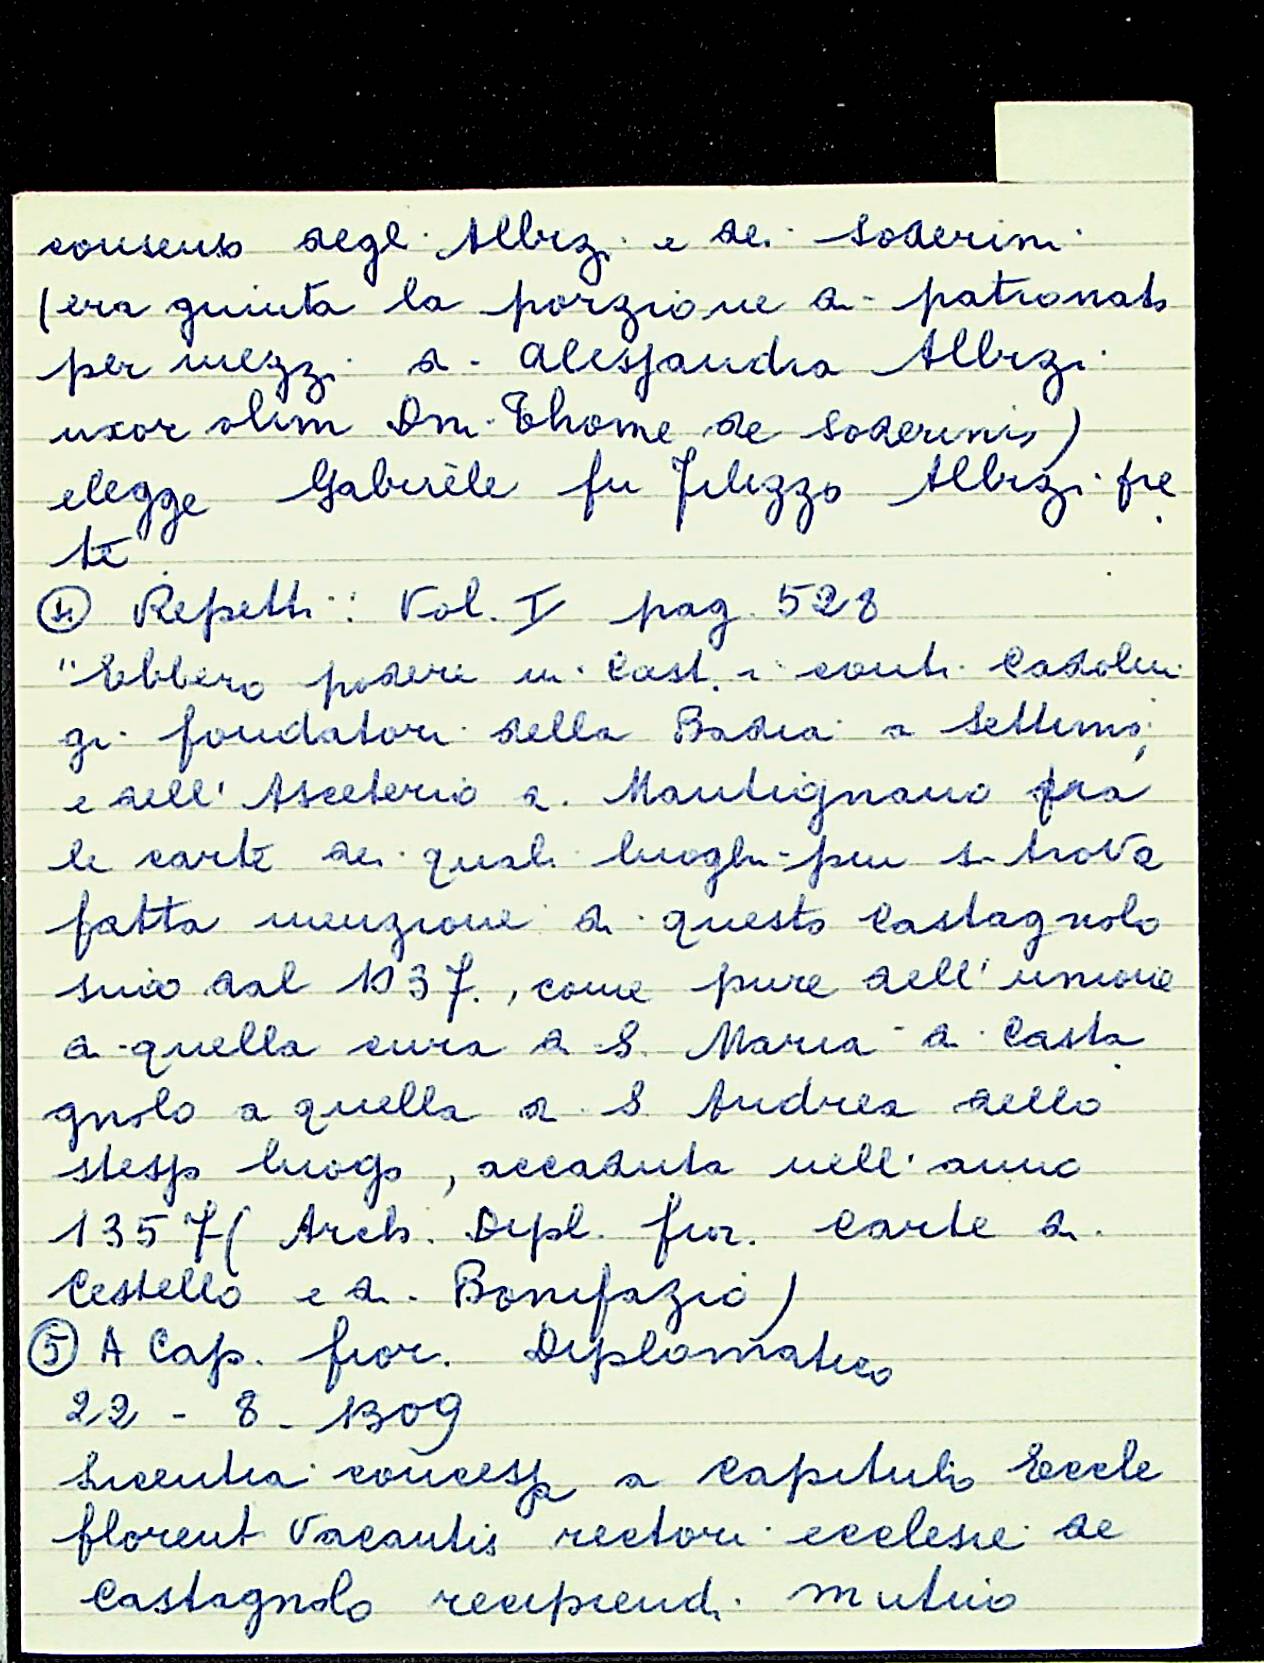 consenso degli Albizi e dei Soderini
(era giunta la porzione di patronato
per mezzo di Alessandra Albizi
uxor olim Dni. Thome de Soderinis)
elegge Gabrièle fu Filizzo Albizi pre
te
④ Repetti: Vol. I pag. 528
"Ebbero podere in Cast. i conti Cadolin
gi fondatori della Badia a Settimo,
e dell' Asceterio di Mantignano fra
le carte dei quali luoghi pii si trova
fatta menzione di questo Castagnolo
sino dal 1037., come pure dell' unione
di quella cura di S. Maria a Casta
gnolo a quella di S Andrea dello
stesso luogo, accaduta nell' anno
1357 (Arch. Dipl. fior. Carte di
Cestello e di Bonifazio)
⑤ A Cap. fior. Diplomatico
22 - 8 - 1309
Licentia concessa a capitulo Eccle
florent vacantis rectori ecclesie de
Castagnolo recipiendi mutuo